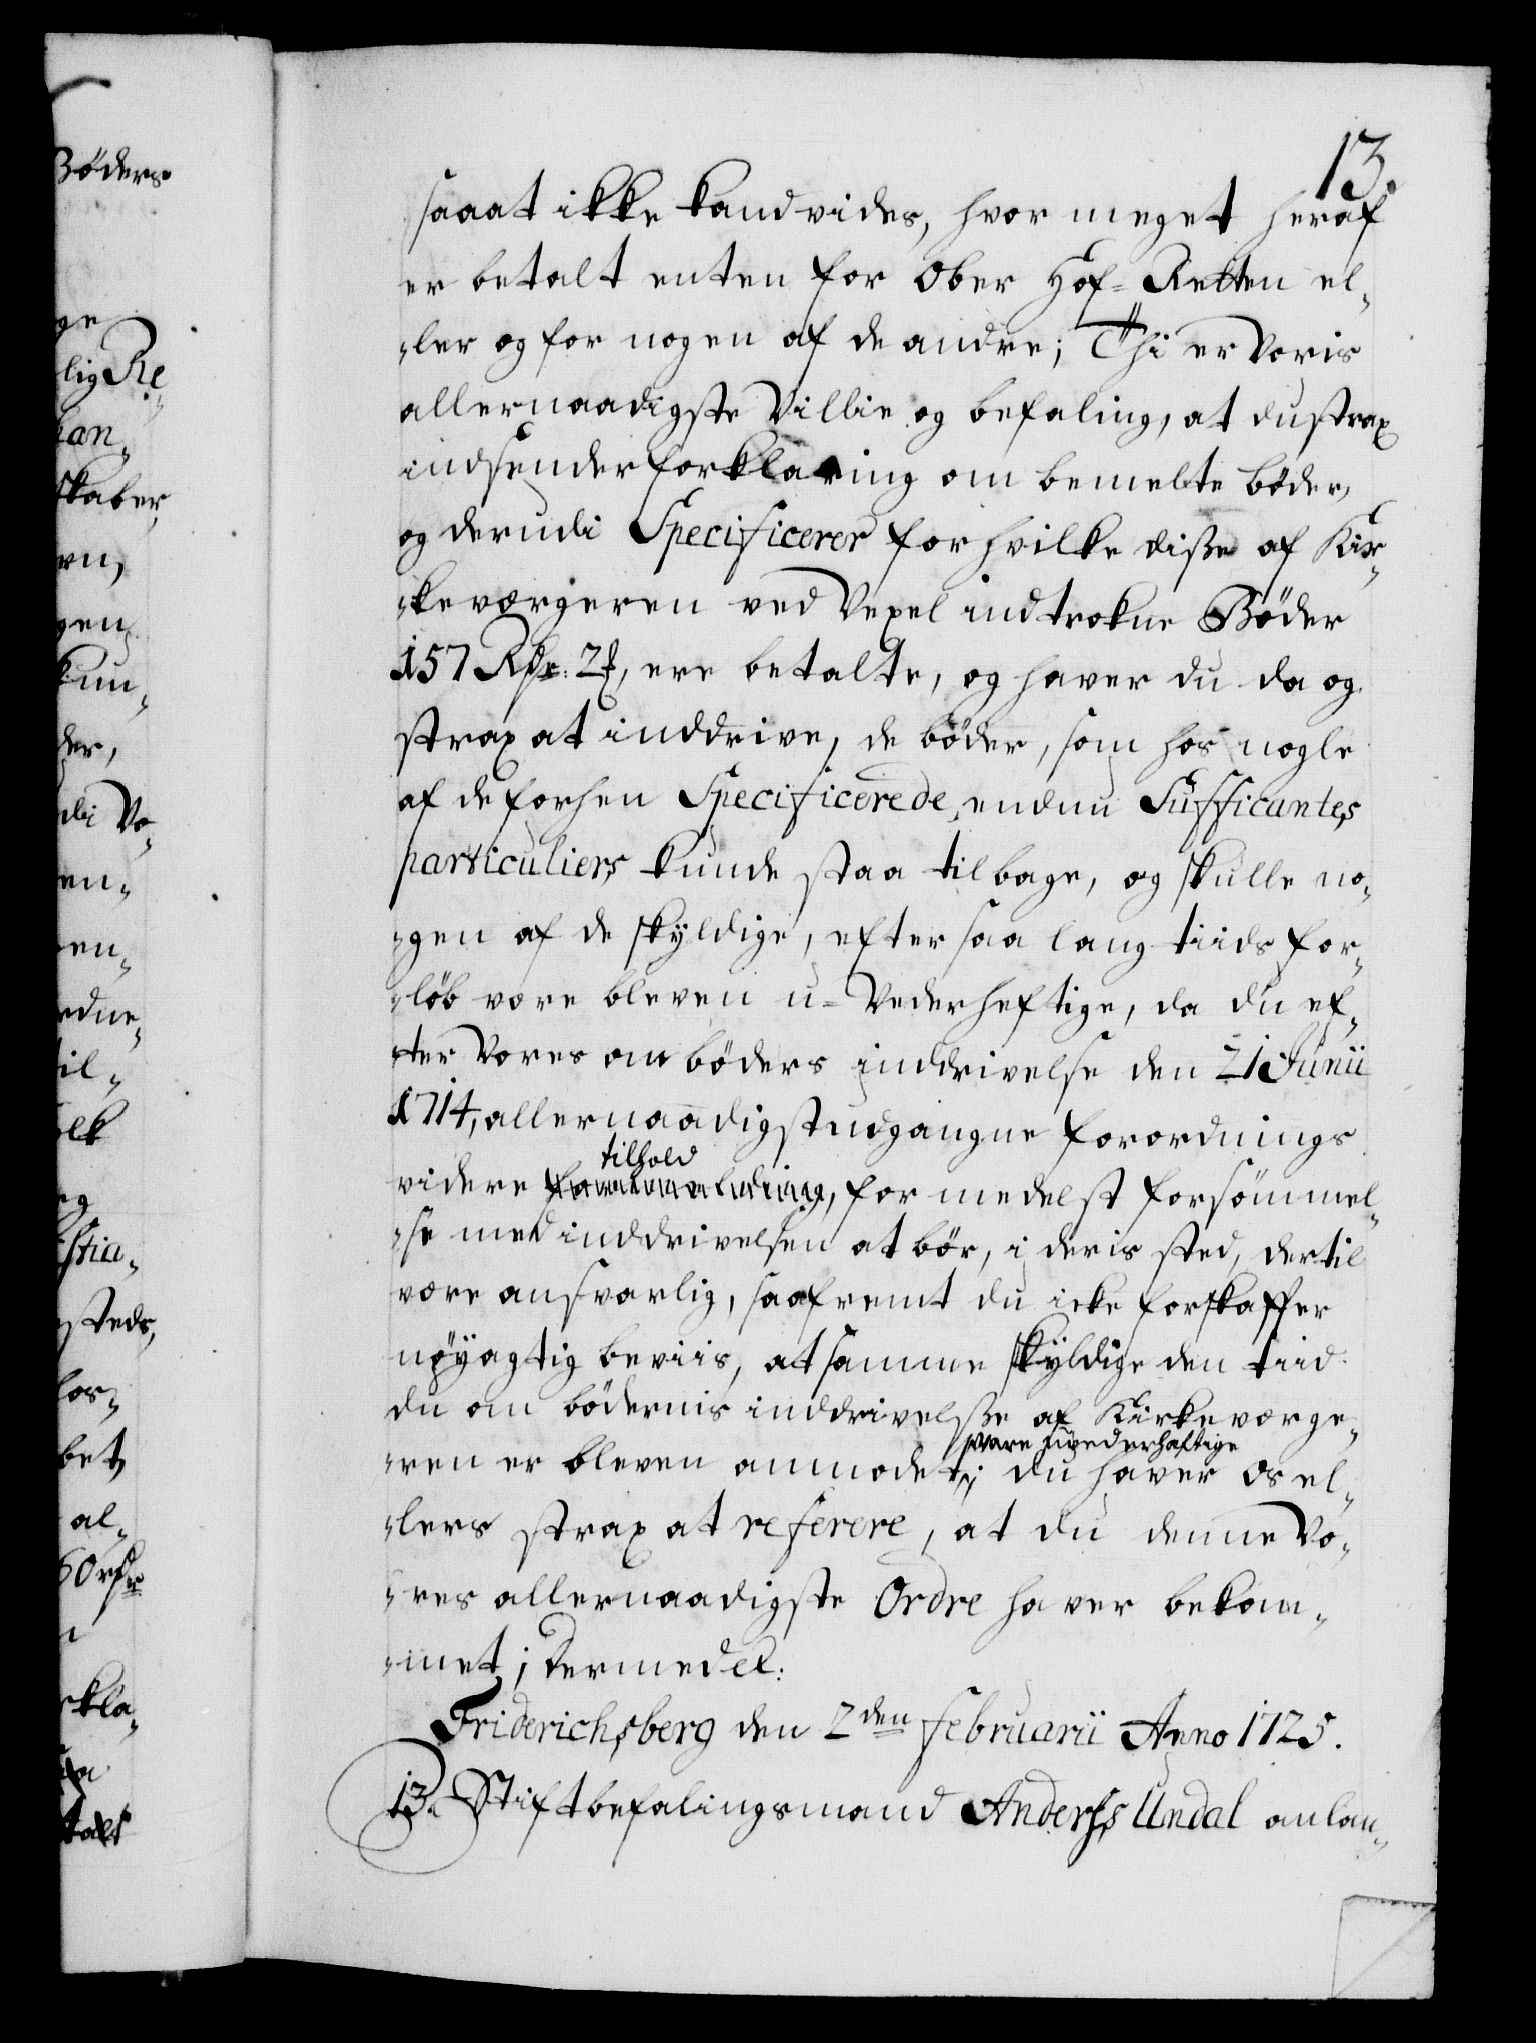 13.
saaat ikke kand vides, hvor meget heraf
er betalt enten for Ober Hof-Retten el-
-ler og for nogen af de andre; Thi er Voris
allernaadigste Villie og befaling, at du strax
indsender forklaring om bemelte bøder,
og derudi Specificerer for hvilke disse af Kir-
-keværgeren ved Vexel indtrokne Bøder
157 Rdr: 2 , ere betalte, og haver du da og
strax at inddrive, de bøder, som hos nogle
af de forhen Specificerede, endnu Sufficantes
particuliers kunde staa tilbage, og skulle no-
-gen af de skyldige, efter saa lang tiids for-
-løb være bleven u-Vederheftige, da du ef-
-ter Vores om bøders inddrivelse den 21 Junii
1714, allernaadigst udgangne forordnings
tilhold
videre , formedelst forsømmel-
-se med inddrivelsen at bør, i deris sted, dertil
være ansvarlig, saafremt du icke forskaffer
nøyagtig beviis, at samme skyldige den tiid
du om bødernis inddrivelsse af Kirkeværge-
vare uvederhæftige
-ren er bleven anmodet; du haver Os el-
-lers strax at referere, at du denne Vo-
-res allernaadigste Ordre haver bekom-
-met; Dermed etc:
Friderichsberg den 2den Februarii Anno 1725.
13. Stiftbefalingsmand Anderss Undal anlan-
Bøders
ge
lig Re-
kan-
skaber,
en,
gen
kun-
der,
di Vo-
en-
en-
rdne-
til-
olk
eg
stia-
steds,
for-
bet
al-
60 rdr
rkla-
talt